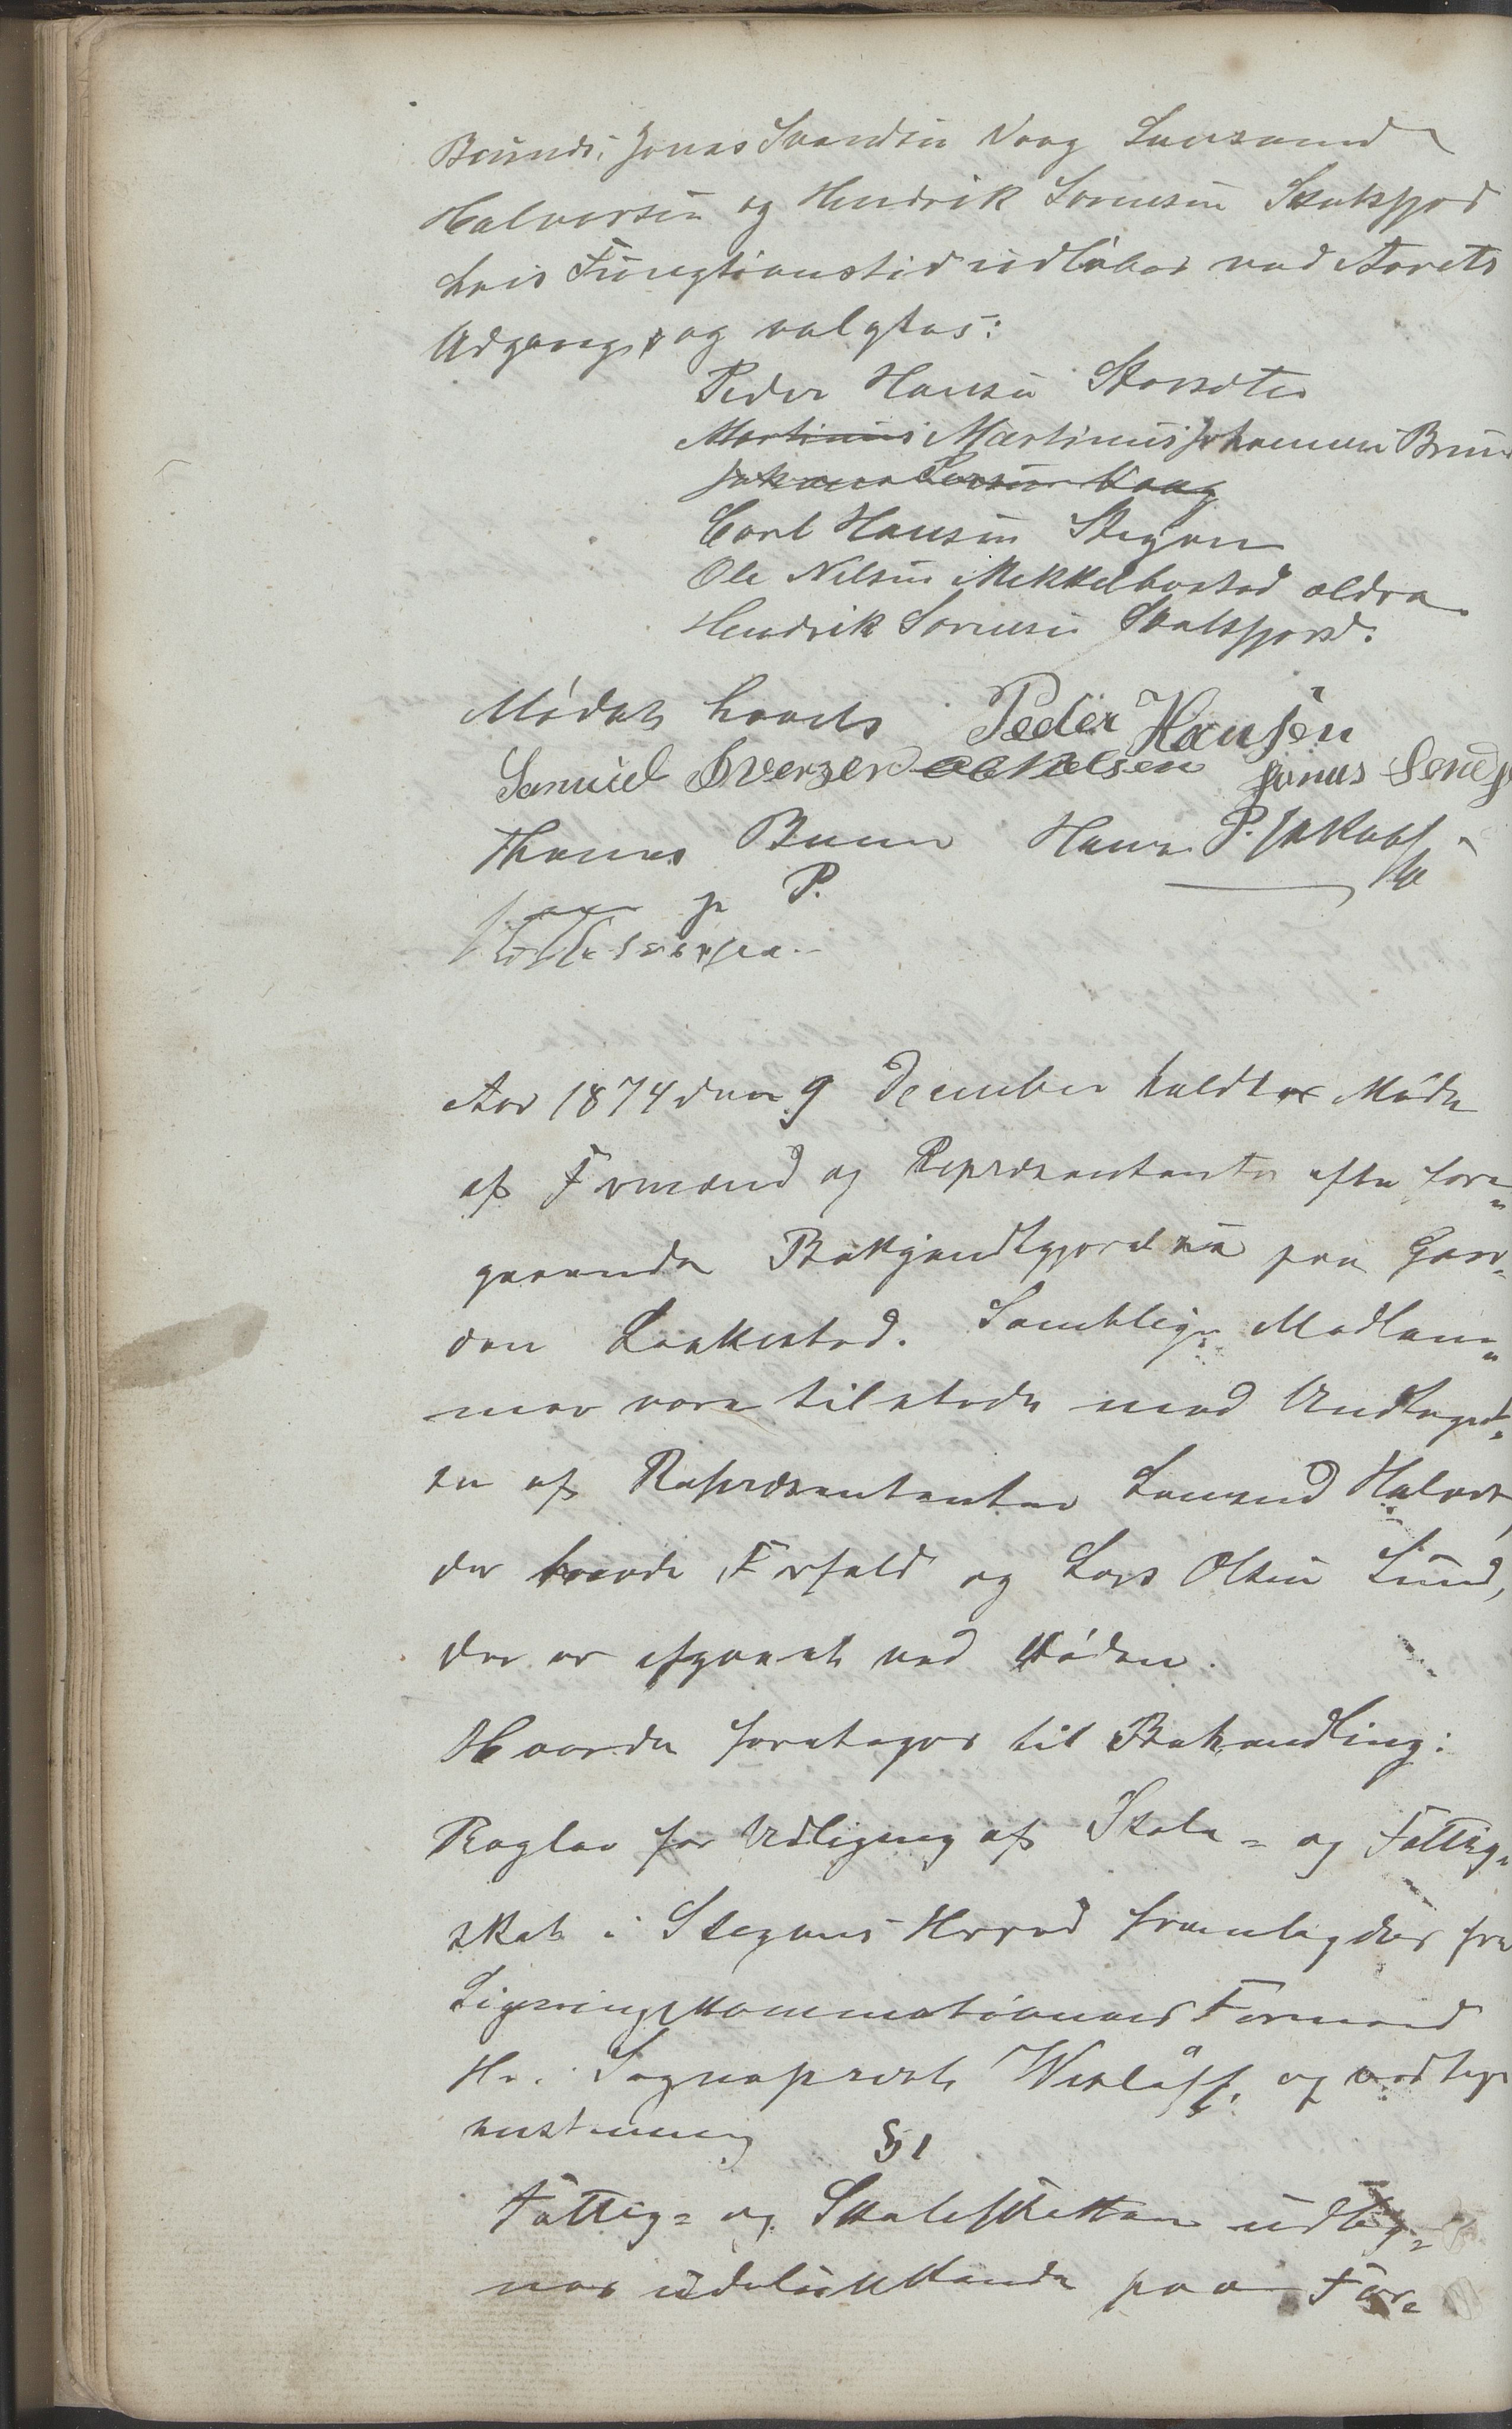 Brunds, Jonas Svendsen Vaag Laursand
Halvorsen og Hendrik Sørensen Skutsfjord
hvis Funqtionstid udløber ved Aarets
Udgang, og valgtes:
Peder Hansen Storsete
Martinus Martinus Johannesen Brun
Johan Larsen Vaag
Carl Hansen Stegen
Ole Nilsen Mekkelbostad ældre
Hendrik Sørensen Skutsfjord.
Mødet hævet Peder Hansen
Samuel Sverzen Ole Nielsen Jonus Sends
Thomas Bunn Hans P. Jakobs
p P.
Aar 1874 den 9 December holdtes Møde
af Formænd og Repræsentanter efter fore=
gaaende Bekjendtgjørelse paa Gaar=
den Laskestad. Samtlige Medlem=
mer vare tilstede med Undtagel=
se af Repræsentanter Laurand Halvors
der havde Forfald og Lars Olsen Lund,
der er afgaaet ved Døden.
Hvorda foretoges til Behandling:
Regler for Udligning af Skole= og Fattig=
skat i Stegens Herred fremlagdes fra
Ligningskommisionens Formand
Hr. Sognepræst Wisløff, og vedtoges
enstemmig §1
Fattig= og Skoleskatten udlig=
nes udelukkende paa For=